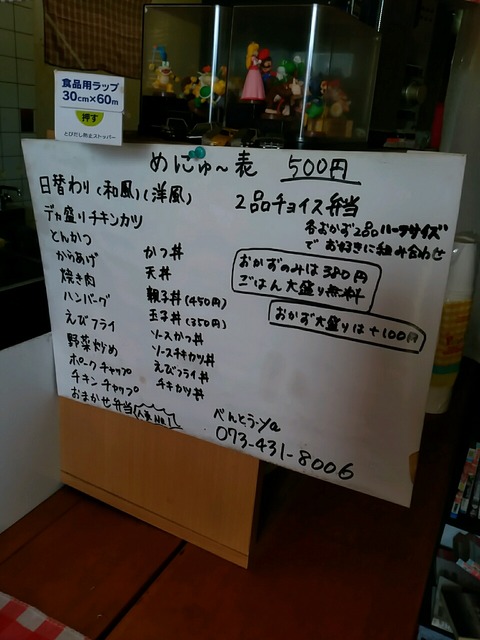 食品用ラップ
30cm×60m
押す
とびだし防止ストッパー
めにゅ〜表 500円
日替わり(和風)(洋風)
デカ盛りチキンカツ
とんかつ
からあげ
焼き肉
ハンバーグ
えびフライ
野菜炒め
ポークチャップ
チキンチャップ
おまかせ弁当 人気No.1
かつ丼
天丼
親子丼(450円)
玉子丼(350円)
ソースかつ丼
ソースチキカツ丼
えびフライ丼
チキカツ丼
2品チョイス弁当
各おかず2品ハーフサイズ
でお好きに組み合わせ
おかずのみは380円
ごはん大盛り無料
おかず大盛りは+100円
べんとう・Ya
073-431-8006